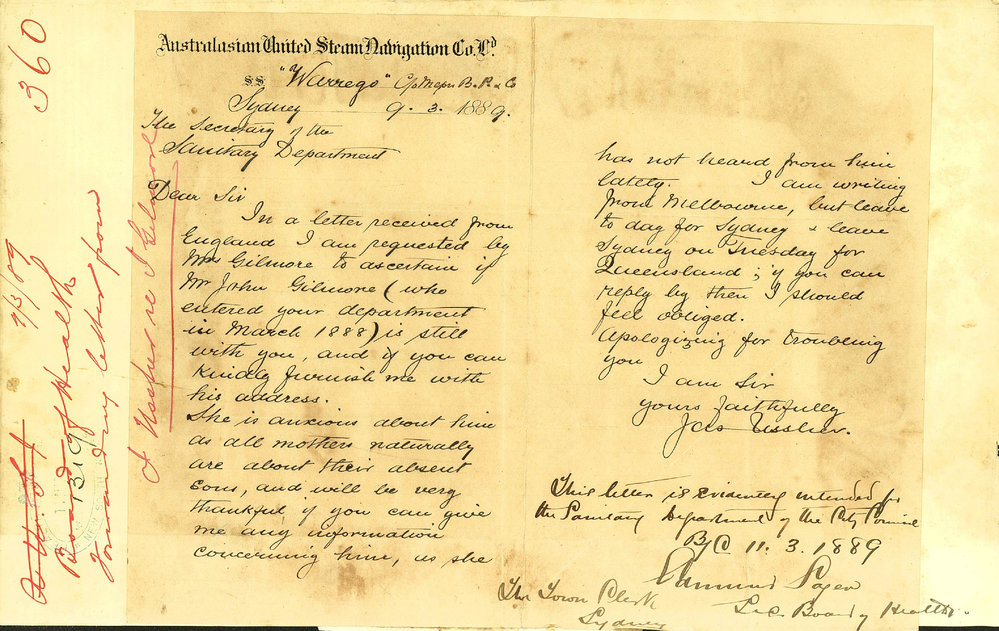 360
Australasian United Steam Navigation Co. Ld.
S.S. "Warrego" C/o Messrs B. P. & Co
Sydney 9. 3. 1889.
The Secretary of the
Sanitary Department
Dear Sir
In a letter received from
England I am requested by
Mrs Gilmore to ascertain if
Mr John Gilmore (who
entered your department
in March 1888) is still
with you, and if you can
kindly furnish me with
his address.
She is anxious about him
as all mothers naturally
are about their absent
sons, and will be very
thankful if you can give
me any information
concerning him, as she
has not heard from him
lately. I am writing
from Melbourne, but leave
to day for Sydney & leave
Sydney on Tuesday for
Queensland; if you can
reply by then I should
feel obliged.
Apologizing for troubling
you
I am Sir
yours faithfully
Jas Ussher.
This letter is evidently intended for
the Sanitary Department of the City Council
B/C 11. 3. 1889
Edmund Sager
Sec. Board of Health.
The Town Clerk
Sydney
Board of Health
forwarding letter from
J Ussher re J Gilmore
1319